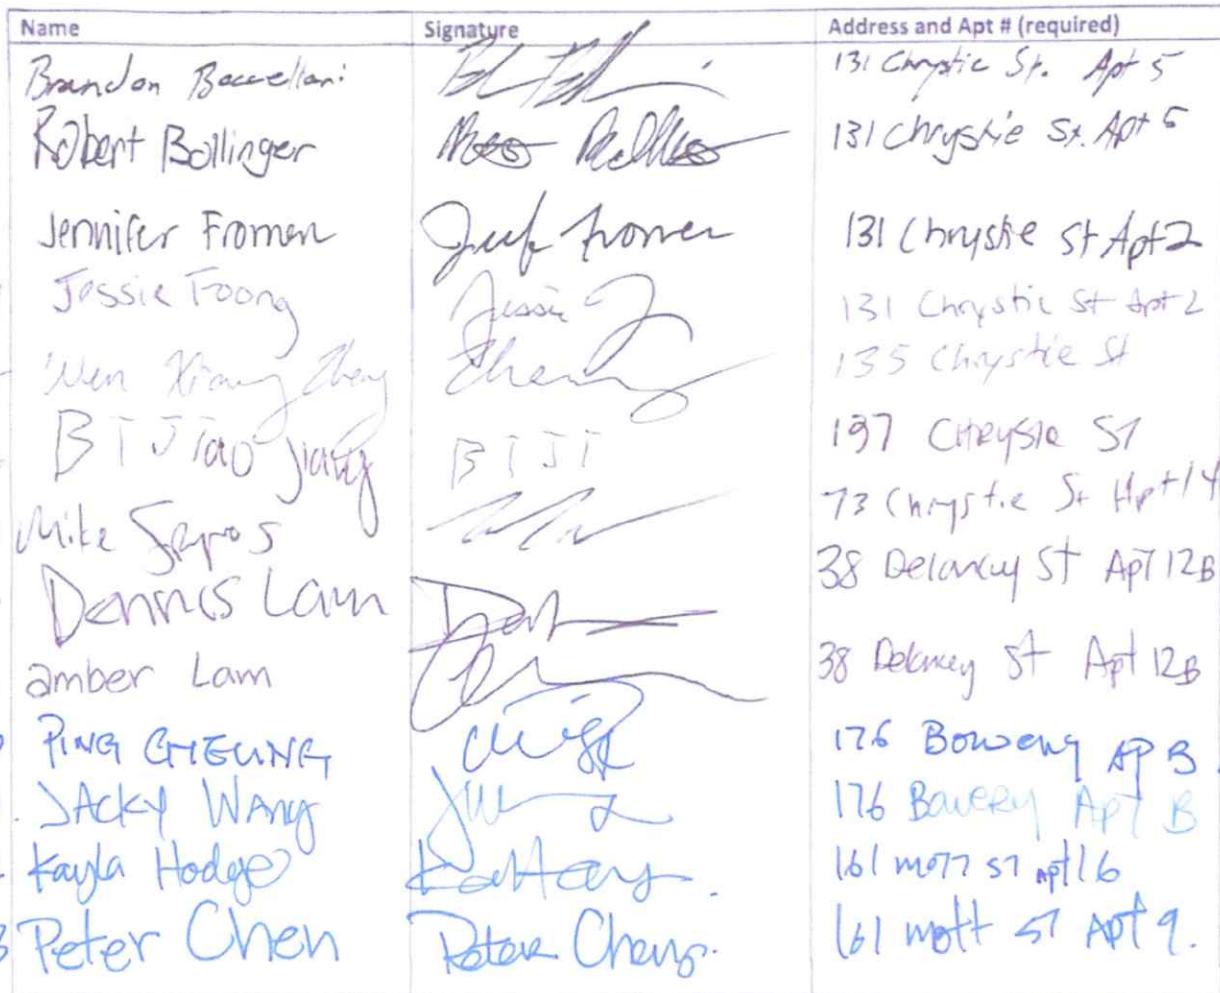 Name Signature Address and Apt # (required)
Brandon 131 Chrystie St. Apt 5
Robert Bollinger 131 Chrystie St. Apt 5
Jennifer Fromen 131 Chrystie St Apt 2
Jessie Foong Jessie 131 Chrystie St Apt 2
Wen Xiang Zheng Zheng 135 Chrystie St
BI Jiao Jiang BIJI 197 Chrysie ST
Mike 73 Chrystie St Apt 14
Dennis Lam 38 Delancey St APT 12B
amber Lam 38 Delancey St Apt 12B
PING CHEUNG 176 Bowery AP B
JACKY WANG 176 BOWERY APT B
Kayla Hodge 161 MOTT ST APT 16
3 Peter Chen Peter 161 mott ST APT 9.